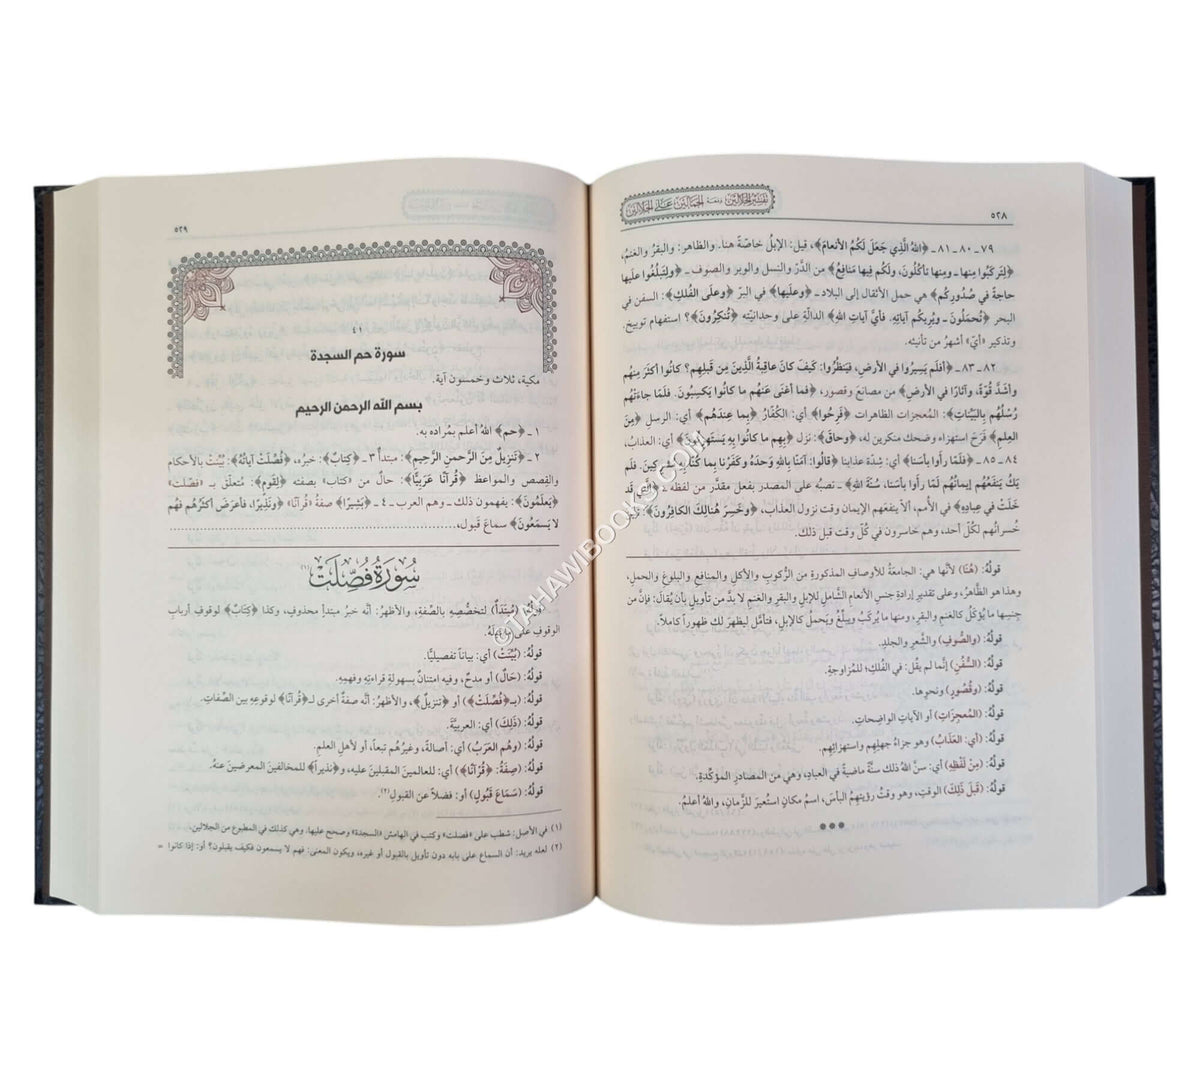 تفسير الجلالين ومعه الجمالين على الجلالين
٥٢٨
٧٩ ـ ٨٠ ـ ٨١ ـ ﴿اللهُ الَّذِي جَعَلَ لَكُمُ الأنعامَ﴾، قيل: الإبلُ خاصّةً هنا. والظاهر: والبقرُ والغنمُ،
﴿لِتَركَبُوا مِنها ـ ومِنها تأكُلُونَ، ولَكُم فِيها مَنافِعُ﴾ من الدَّرِّ والنسل والوبر والصوف ـ ﴿ولِتَبلُغُوا علَيها
حاجةً في صُدُورِكُم﴾ هي حمل الأثقال إلى البلاد ـ ﴿وعلَيها﴾ في البرّ ﴿وعلَى الفُلكِ﴾: السفن في
البحر ﴿تُحمَلُونَ ـ ويُرِيكُم آياتِهِ. فأيَّ آياتِ اللهِ﴾ الدالّةِ على وحدانيّته ﴿تُنكِرُونَ﴾؟ استفهام توبيخ.
وتذكير «أيّ» أشهرُ من تأنيثه.
٨٢ ـ ٨٣ ـ ﴿أفلَم يَسِيرُوا في الأرضِ، فيَنظُرُوا: كَيفَ كانَ عاقِبةُ الَّذِينَ مِن قَبلِهِم؟ كانُوا أكثَرَ مِنهُم
وأشَدَّ قُوّةً، وآثارًا في الأرضِ﴾ من مصانعَ وقصور، ﴿فما أغنَى عَنهُم ما كانُوا يَكسِبُونَ. فلَمّا جاءَتهُم
رُسُلُهُم بِالبَيِّناتِ﴾: المُعجِزات الظاهرات ﴿فَرِحُوا﴾ أي: الكُفّارُ ﴿بِما عِندَهُم﴾ أي: الرسلِ ﴿مِنَ
العِلمِ﴾ فَرَحَ استهزاء وضحك منكرين له، ﴿وحاقَ﴾: نزل ﴿بِهِم ما كانُوا بِهِ يَستَهزِئُونَ﴾ أي: العذابُ،
٨٤ ـ ٨٥ ـ ﴿فلَمّا رأَوا بأسَنا﴾ أي: شِدّة عذابنا ﴿قالُوا: آمَنّا بِاللهِ وَحدَهُ وكَفَرنا بِما كُنّا بِهِ مُشرِكِينَ. فلَم
يَكُ يَنفَعُهُم إيمانُهُم لَمّا رأَوا بأسَنا، سُنّةَ اللهِ﴾ ـ نصبُه على المصدر بفعل مقدَّر من لفظه ـ ﴿الَّتِي قَد
خَلَتْ في عِبادِهِ﴾ في الأُمم، ألّا ينفعَهم الإيمان وقت نزول العذاب، ﴿وخَسِرَ هُنالِكَ الكافِرُونَ﴾: تبيَّن
خُسرانُهم لكُلّ أحد، وهم خاسرون في كُلّ وقت قبل ذلك.
قولُهُ: (هُنا) لأنَّها هي: الجامعةُ للأوصافِ المذكورةِ من الرُّكوبِ والأكلِ والمنافعِ والبلوغِ والحملِ،
وهذا هو الظَّاهرُ، وعلى تقديرِ إرادةِ جنسِ الأنعامِ الشَّاملِ للإبلِ والبقرِ والغنمِ لا بدَّ من تأويلٍ بأن يُقالَ: فإنَّ من
جنسِها ما يُؤكَلُ كالغنمِ والبقرِ، ومنها ما يُركَبُ ويبلِّغُ ويَحملُ كالإبلِ، فتأمَّل ليظهرَ لك ظهوراً كاملاً.
قولُهُ: (والصُّوفِ) والشَّعرِ والجلدِ.
قولُهُ: (السُّفُنِ) إنَّما لم يقُل: في الفُلكِ؛ للمُزاوجةِ.
قولُهُ: (وقُصُورٍ) ونحوِها.
قولُهُ: (المُعجِزاتِ) أو الآياتِ الواضِحاتِ.
قولُهُ: (أي: العَذابُ) وهو جزاءُ جهلِهِم واستهزائِهِم.
قولُهُ: (مِن لَفْظِهِ) أي: سنَّ اللهُ ذلك سنَّةً ماضيةً في العبادِ، وهي من المصادرِ المؤكِّدةِ.
قولُهُ: (قَبلَ ذَلِكَ) الوقتِ، وهو وقتُ رؤيتِهِمُ البأسَ، اسمُ مكانٍ استُعيرَ للزَّمانِ، واللهُ أعلمُ.
٥٢٩
٤١
سورة حم السجدة
مكية، ثلاث وخمسون آية.
بسم الله الرحمن الرحيم
١ ـ ﴿حم﴾ اللهُ أعلم بمُراده به.
٢ ـ ﴿تَنزِيلٌ مِنَ الرَّحمنِ الرَّحِيمِ﴾: مبتدأ ٣ ـ ﴿كِتابٌ﴾: خبرُه، ﴿فُصِّلَتْ آياتُهُ﴾: بُيِّنتْ بالأحكام
والقِصص والمواعظ ﴿قُرآنًا عَرَبِيًّا﴾: حالٌ من «كتاب» بصفته ﴿لِقَومٍ﴾: مُتعلّق بـ «فصّلت»
﴿يَعلَمُونَ﴾: يفهمون ذلك ـ وهم العرب ـ ٤ ـ ﴿بَشِيرًا﴾ صفةُ «قُرآنًا» ﴿ونَذِيرًا، فأعرَضَ أكثَرُهُم فهُم
لا يَسمَعُونَ﴾ سماعَ قَبول، ..........
سُورَةُ فُصِّلَتْ(١)
قولُهُ: (مُبتَدَأٌ) لتخصُّصِهِ بالصِّفةِ، والأظهرُ: أنَّه خبرُ مبتدأ محذوفٍ، وكذا ﴿كِتابٌ﴾ لوقوفِ أربابِ
الوقوفِ على ما قبلَهُ.
قولُهُ: (بُيِّنَتْ) أي: بياناً تفصيليًّا.
قولُهُ: (حَالٌ) أو مدحٌ، وفيه امتنانٌ بسهولةِ قراءتِهِ وفهمِهِ.
قولُهُ: (بـ﴿فُصِّلَتْ﴾) أو ﴿تنزيلٌ﴾، والأظهرُ: أنَّه صفةٌ أخرى لـ﴿قُرآنًا﴾ لوقوعِهِ بين الصِّفاتِ.
قولُهُ: (ذَلِكَ) أي: العربيَّةَ.
قولُهُ: (وهُم العَرَبُ) أي: أصالةً، وغيرُهُم تبعاً، أو لأهلِ العلمِ.
قولُهُ: (صِفَةُ: ﴿قُرْآنًا﴾) أي: للعالمينَ المقبلينَ عليه، و﴿نذيراً﴾ للمخالفينَ المعرضينَ عنهُ.
قولُهُ: (سَمَاعَ قَبُولٍ) أو: فضلاً عن القبولِ(٢).
(١) في الأصل: شطب على «فصلت» وكتب في الهامش «السجدة» وصحح عليها، وهي كذلك في المطبوع من الجلالين.
(٢) لعله يريد: أن السماع على بابه دون تأويل بالقبول أو غيره، ويكون المعنى: فهم لا يسمعون فكيف يقبلون؟ أو: إذا كانوا =
©TAHAWIBOOKS.COM